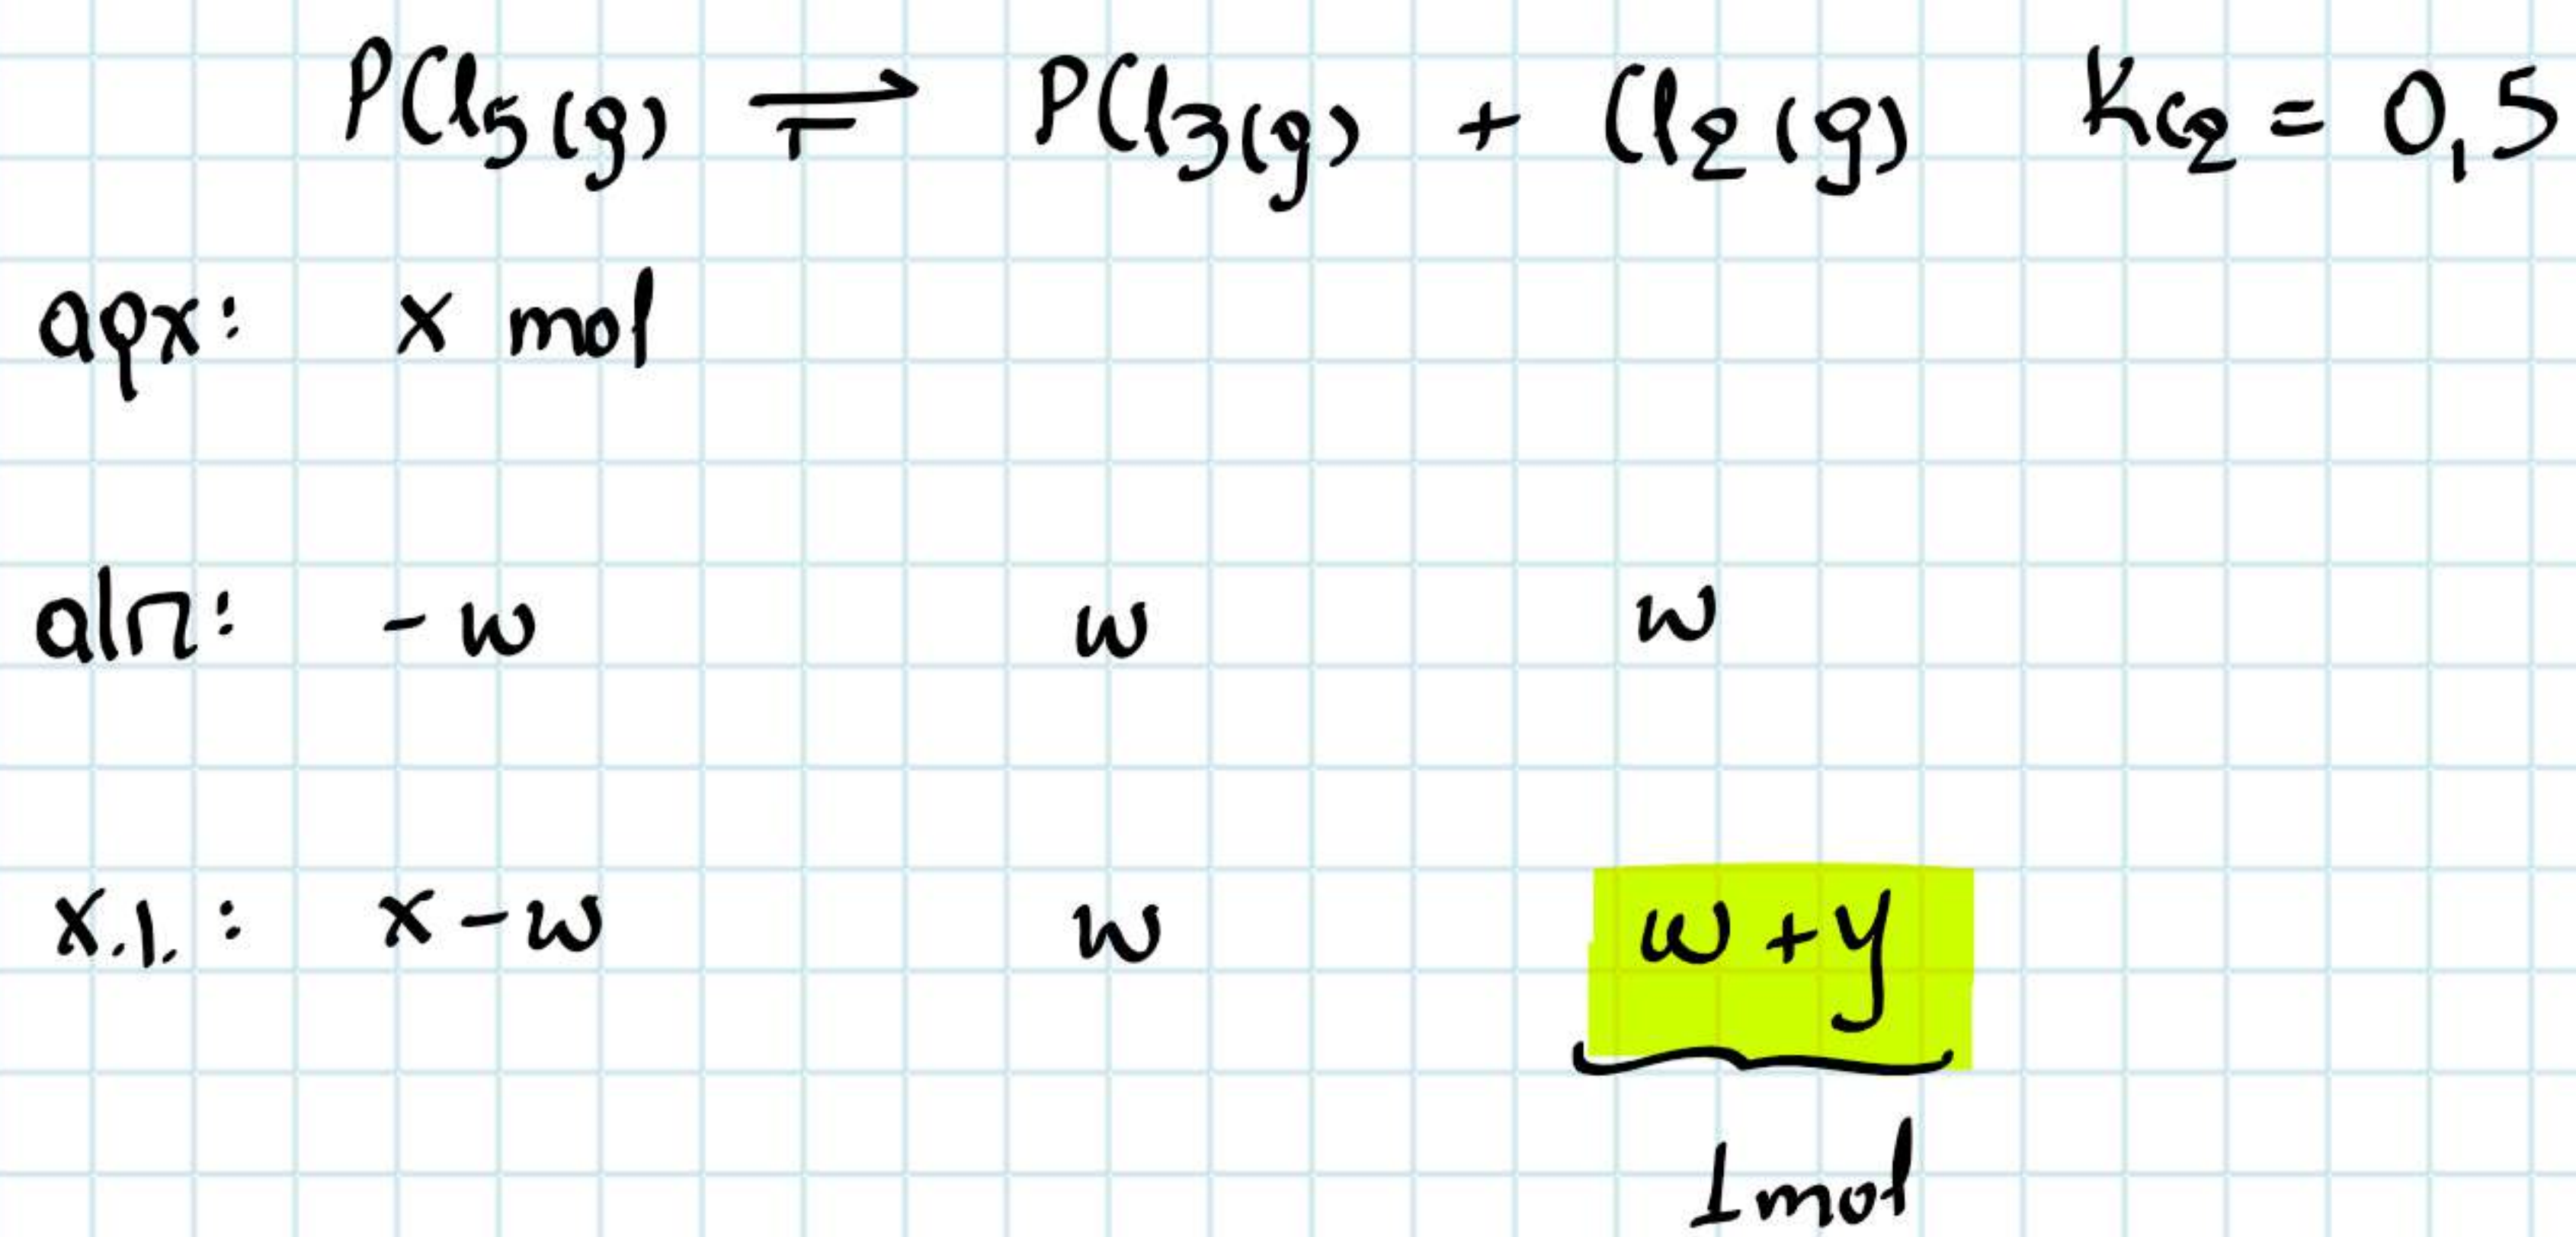 PCl₅(g) ⇌ PCl₃(g) + Cl₂(g) Kc₂ = 0,5
αρχ: x mol
αlπ: -ω ω ω
x.l.: x-ω ω ω+y
1mol